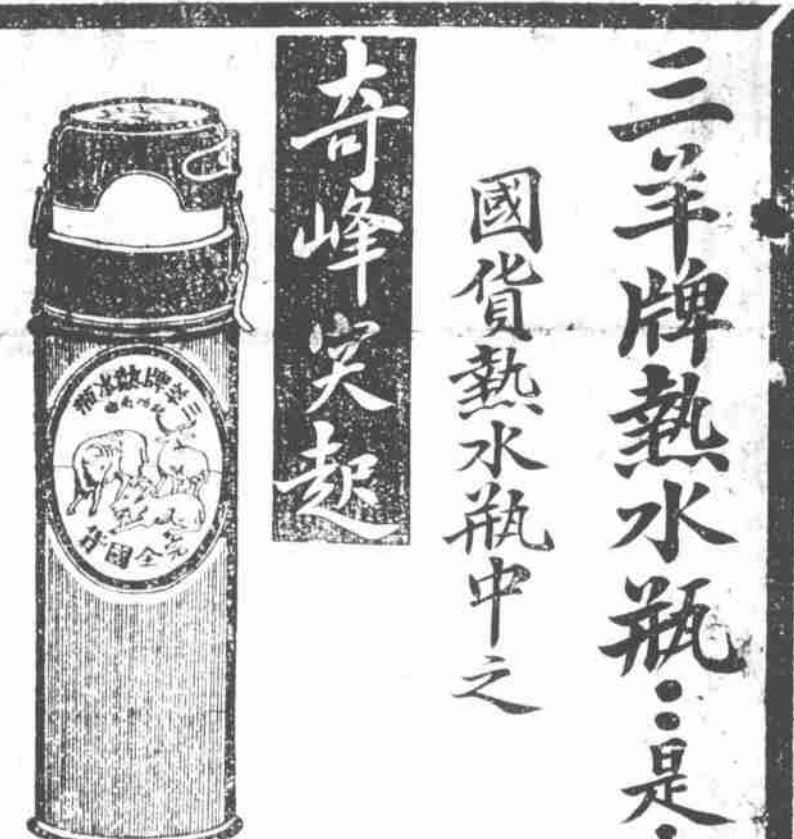 三羊牌熱水瓶：是：
國貨熱水瓶中之
奇峰突起
三羊牌熱水瓶
完全國貨